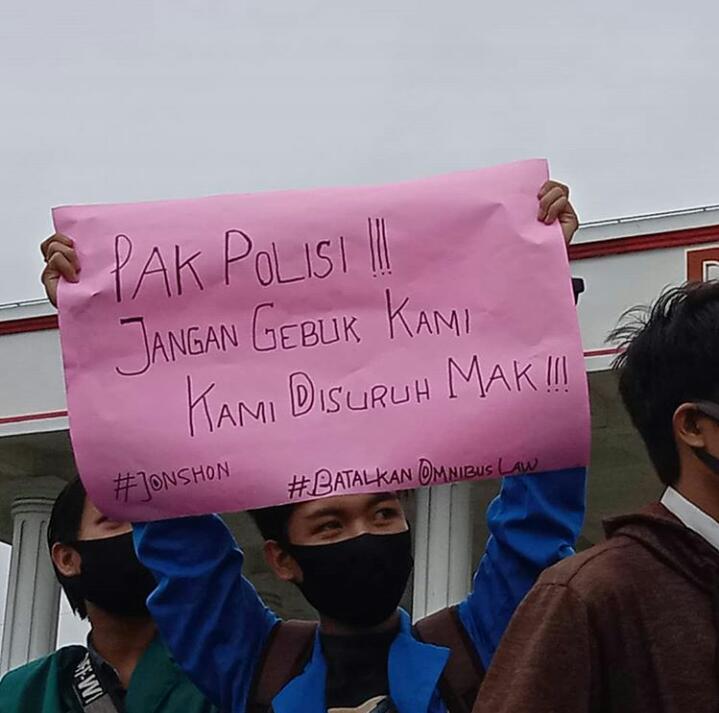 PAK POLISI !!!
JANGAN GEBUK KAMI
KAMI DISURUH MAK !!!
#JONSHON
#BATALKAN OMNIBUS LAW